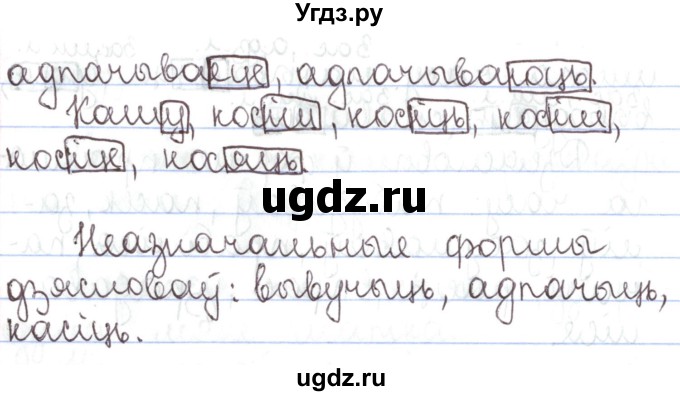 Угдз.ру
адпачываеце, адпачываюць.
Кашу, косіш, косіць, косім,
косіце, косяць.
ugdz.ru
Неазначальныя формы
дзясловаў: вывучыць, адпачыць,
касіць.
ugdz.ru